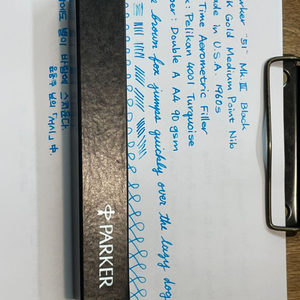 arker "51" Mk III Black
K Gold Medium Point Nib
ade in U.S.A. 1960s
Time Aerometric Filler
: Pelikan 4001 Turquoise
per: Double A A4 90 gsm
brown fox jumps quickly over the lazy dog
PARKER
별이 바람에 스치운다.
윤동주 님의 「서시」 中.